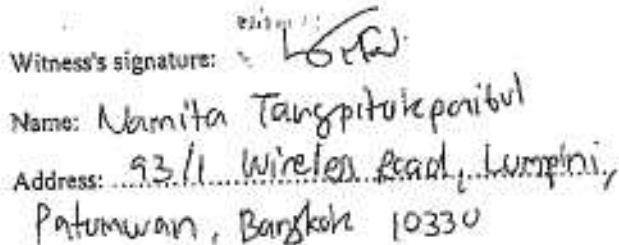 Witness's signature:
Name: Namita Tangpitukpaibul
Address: 93/1 Wireless Road, Lumpini,
Patumwan, Bangkok 10330